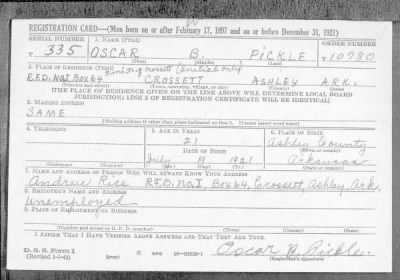 REGISTRATION CARD—(Men born on or after February 17, 1897 and on or before December 31, 1921)
SERIAL NUMBER 1. NAME (Print) ORDER NUMBER
T 335 OSCAR B. PICKLE T 10780
(First) (Middle) (Last)
2. PLACE OF RESIDENCE (Print) Crossett (initial only)
R.F.D. No.1 Box 64 CROSSETT ASHLEY ARK.
(Number and street) (Town, township, village, or city) (County) (State)
[THE PLACE OF RESIDENCE GIVEN ON THE LINE ABOVE WILL DETERMINE LOCAL BOARD
JURISDICTION; LINE 2 OF REGISTRATION CERTIFICATE WILL BE IDENTICAL]
3. MAILING ADDRESS
SAME
[Mailing address if other than place indicated on line 2. If same insert word same]
4. TELEPHONE 5. AGE IN YEARS 6. PLACE OF BIRTH
21 Ashley County
DATE OF BIRTH
July 19 1921 Arkansas
(Exchange) (Number) (Mo.) (Day) (Yr.) (State or country)
7. NAME AND ADDRESS OF PERSON WHO WILL ALWAYS KNOW YOUR ADDRESS
Andrew Rice R.F.D. No.1 Box 64, Crossett, Ashley, Ark.
8. EMPLOYER'S NAME AND ADDRESS
Unemployed
9. PLACE OF EMPLOYMENT OR BUSINESS
(Number and street or R. F. D. number) (Town) (County) (State)
I AFFIRM THAT I HAVE VERIFIED ABOVE ANSWERS AND THAT THEY ARE TRUE.
D. S. S. Form 1 GPO
(Revised 1-1-42) (over) Oscar B. Pickle
(Registrant's signature)